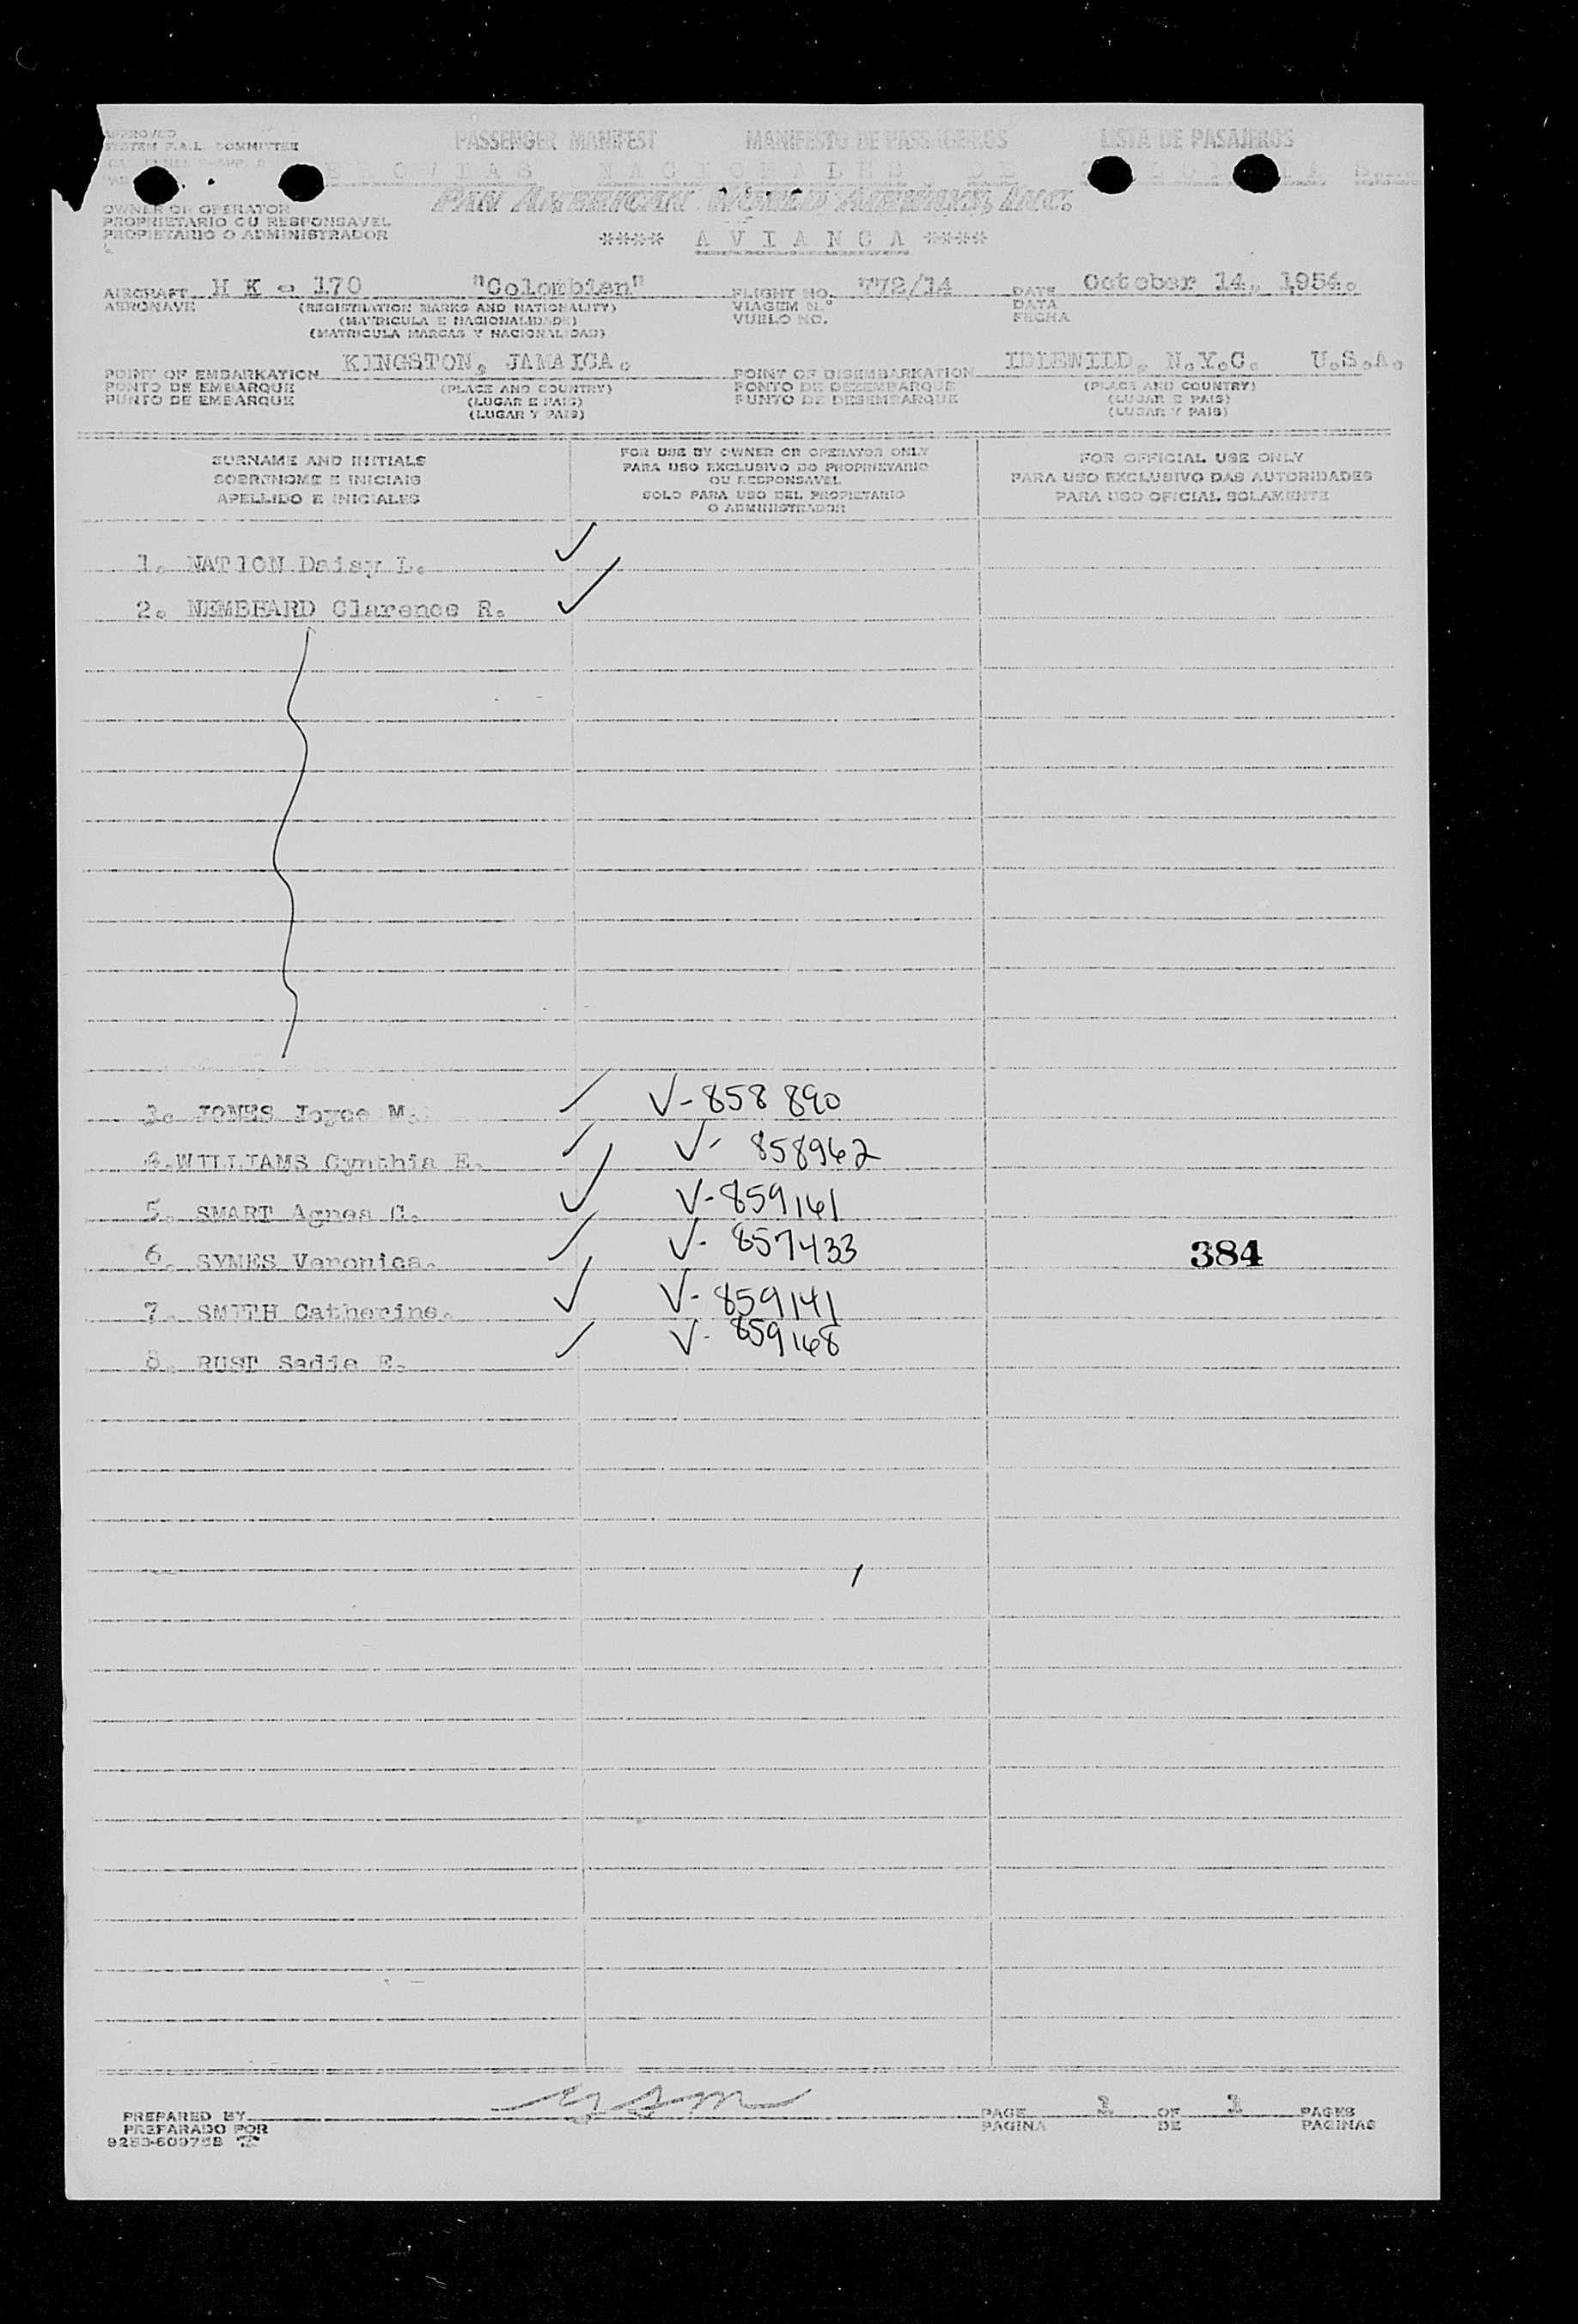 APPROVED PASSENGER MANIFEST MANIFESTO DE PASSAGEIROS LISTA DE PASAJEROS
SYSTEM F.A.L. COMMITTEE
NACIONALES DE
PAN AMERICAN WORLD AIRWAYS, INC.
OWNER OR OPERATOR
PROPRIETARIO OU RESPONSAVEL
PROPIETARIO O ADMINISTRADOR
**** AVIANCA ****
AIRCRAFT H K - 170 "Colombian" FLIGHT NO. 772/14 DATE October 14, 1954.
AERONAVE (REGISTRATION MARKS AND NATIONALITY) VIAGEM N.º DATA
(MATRICULA E NACIONALIDADE) VUELO NO. FECHA
(MATRICULA MARCAS Y NACIONALIDAD)
POINT OF EMBARKATION KINGSTON, JAMAICA. POINT OF DISEMBARKATION IDLEWILD, N.Y.C. U.S.A.
PONTO DE EMBARQUE (PLACE AND COUNTRY) PONTO DE DEZEMBARQUE (PLACE AND COUNTRY)
PUNTO DE EMBARQUE (LUGAR E PAIS) PUNTO DE DESEMBARQUE (LUGAR E PAIS)
(LUGAR Y PAIS) (LUGAR Y PAIS)
SURNAME AND INITIALS FOR USE BY OWNER OR OPERATOR ONLY FOR OFFICIAL USE ONLY
SOBRENOME E INICIAIS PARA USO EXCLUSIVO DO PROPRIETARIO PARA USO EXCLUSIVO DAS AUTORIDADES
OU RESPONSAVEL
APELLIDO E INICIALES SOLO PARA USO DEL PROPIETARIO PARA USO OFICIAL SOLAMENTE
O ADMINISTRADOR
1. NATION Daisy L.
2. NEMBHARD Clarence R.
3. JONES Joyce M. V-858890
4. WILLIAMS Cynthia E. V- 858962
5. SMART Agnes C. V-859161
6. SYMES Veronica. V- 857433 384
7. SMITH Catherine. V- 859141
8. RUST Sadie E. V- 859168
PREPARED BY PAGE 1 OF 1 PAGES
PREPARADO POR PAGINA DE PAGINAS